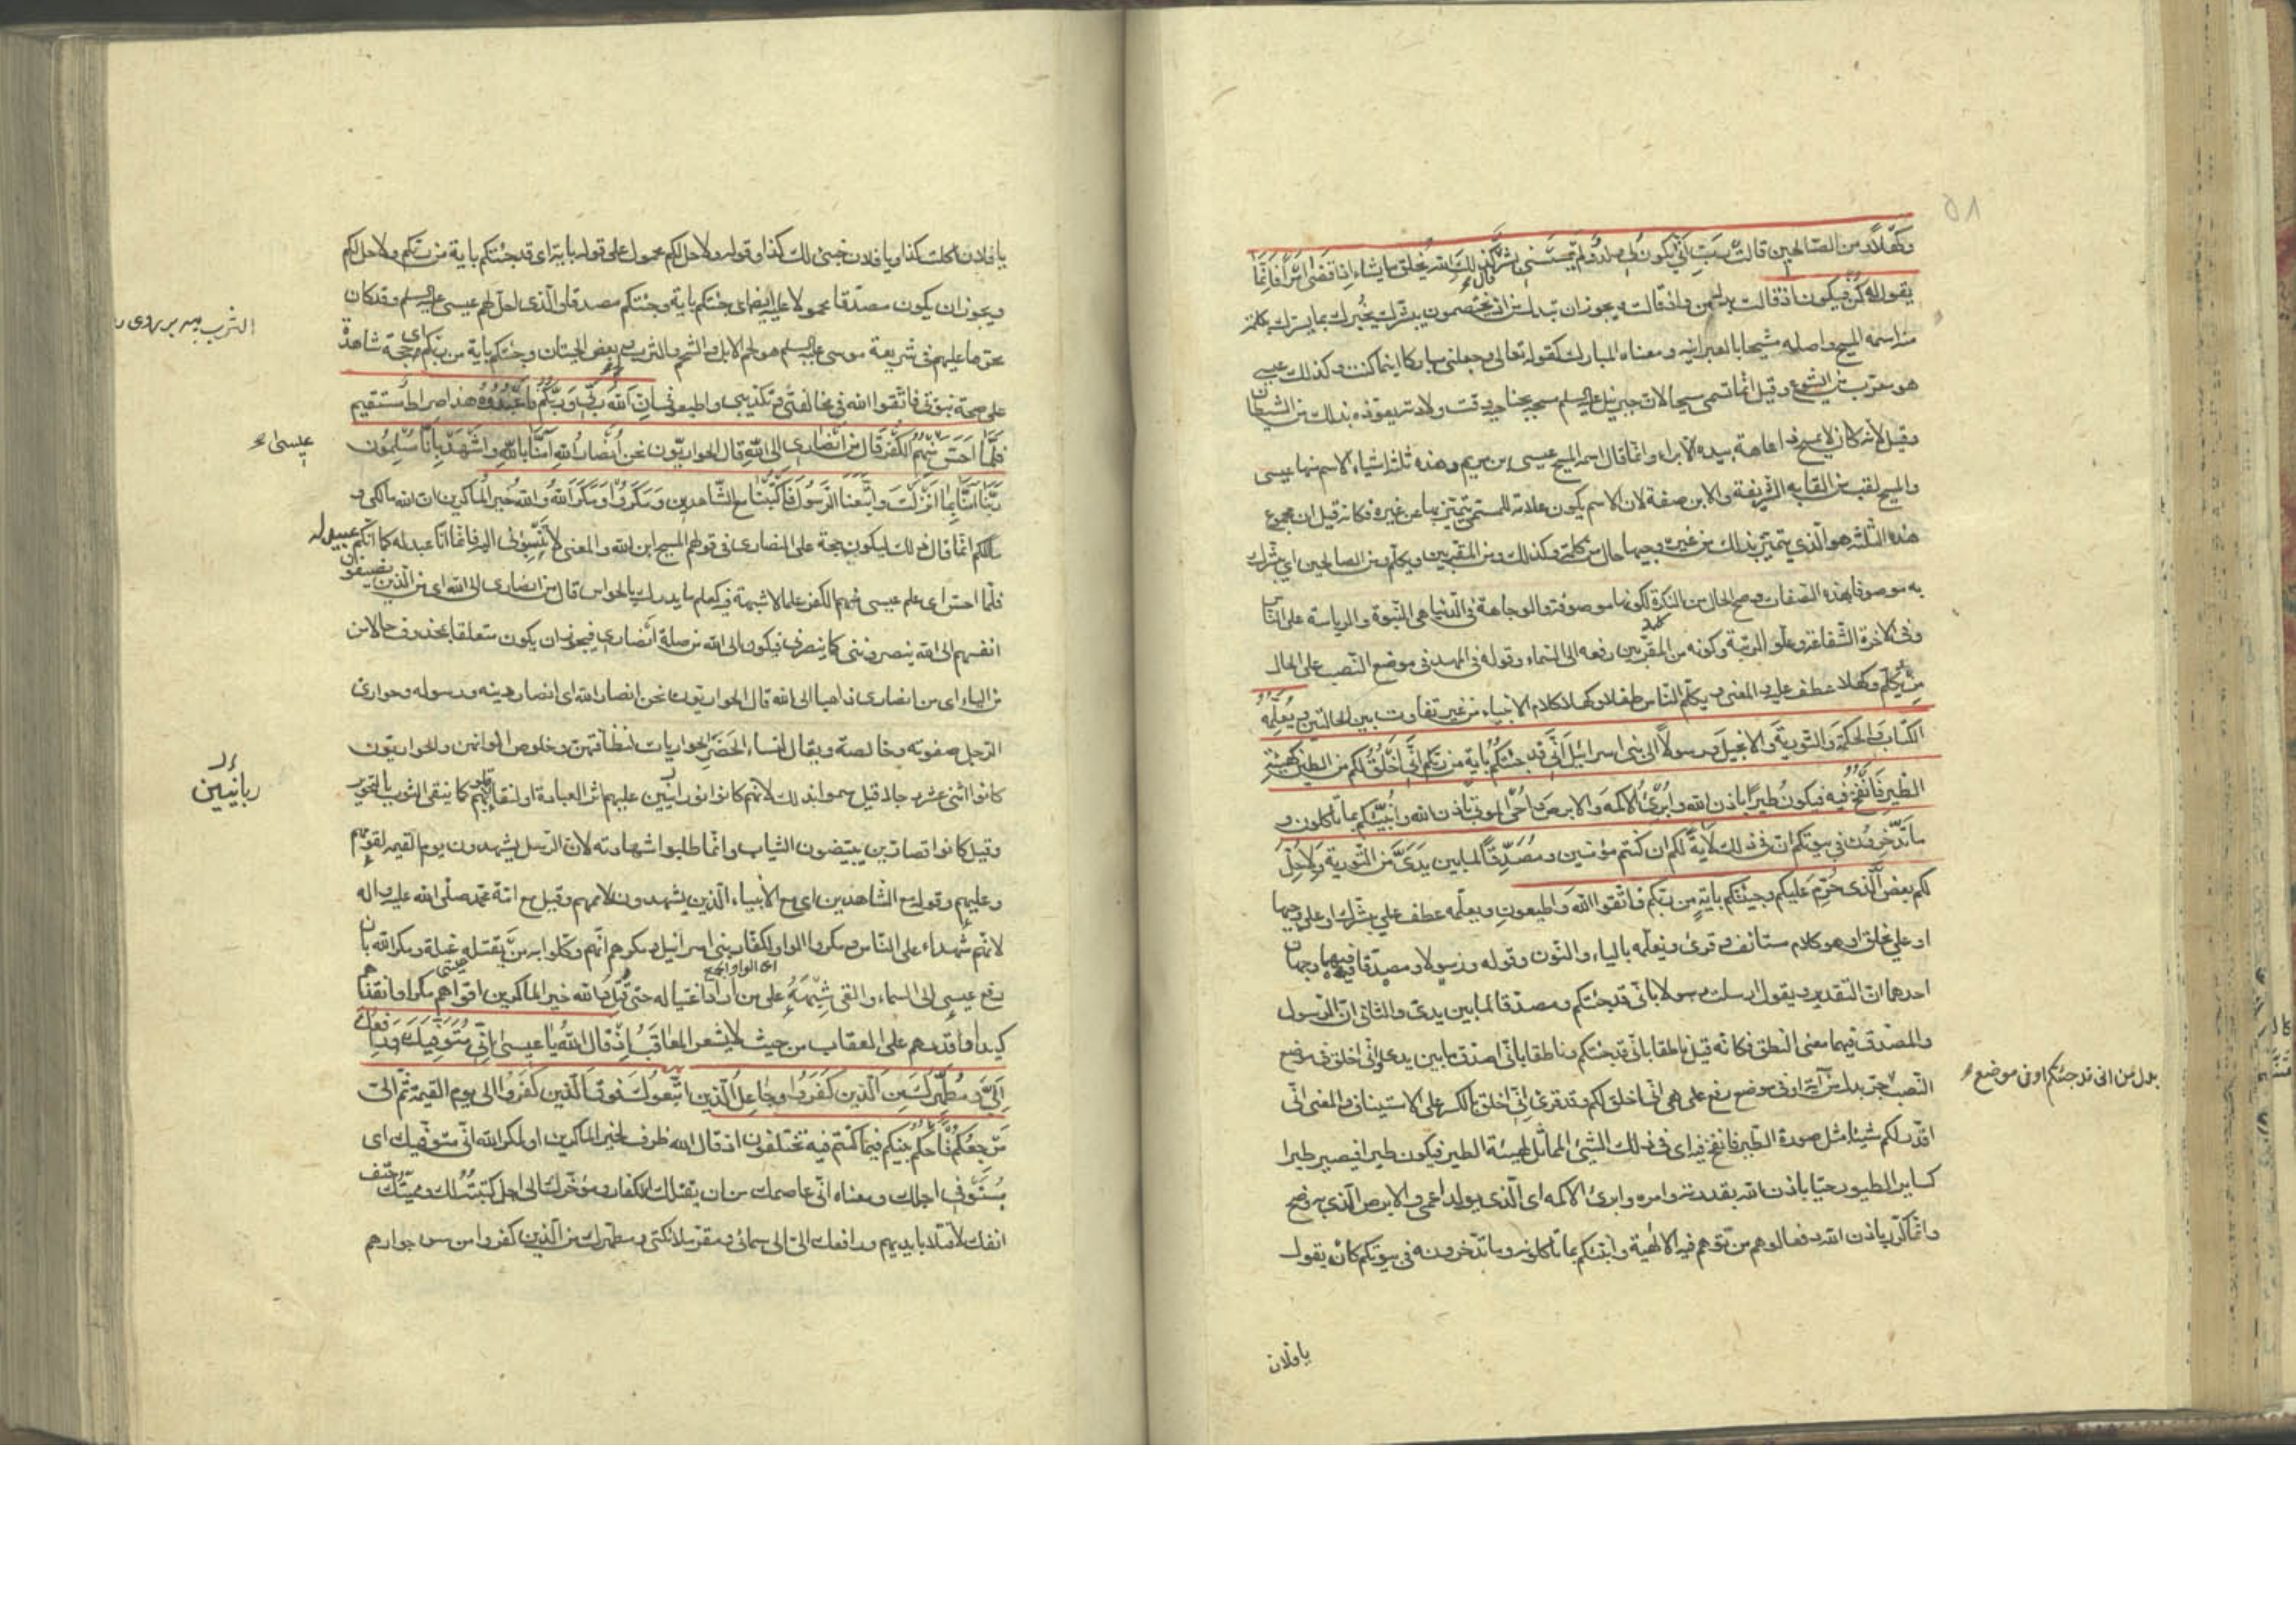 وكهلا ومن الصالحين قالت رب أنى يكون لي ولد ولم يمسسني بشر قال كذلك الله يخلق ما يشاء إذا قضى أمرا فإنما
يقول له كن فيكون اذ قالت بدل من واذ قالت ويجوز ان يبدل من اذ يختصمون يبشرك يخبرك بما يسرك بكلمة
منه اسمه المسيح واصله مشيحا بالعبرانية ومعناه المبارك كقوله تعالى وجعلني مباركا اينما كنت وكذلك عيسى
هو معرب من ايشوع وقيل انما سمى مسيحا لان جبرئيل عليه السلم مسحه بجناحه وقت ولادته يعوذه بذلك من الشيطان
وقيل لانه كان لا يمسح ذا عاهة بيده الا برء وانما قال اسمه المسيح عيسى بن مريم وهذه ثلثة اشياء الاسم منها عيسى
والمسيح لقب من القابه الشريفة والابن صفة لان الاسم يكون علامة للمسمى يتميز بها عن غيره فكانه قيل ان مجموع
هذه الثلثة هو الذي يتميز بذلك من غيره وجيها حال من كلمة وكذلك ومن المقربين ويكلم ومن الصالحين اي يبشرك
به موصوفا بهذه الصفات وصح الحال من النكرة لكونها موصوفة والوجاهة في الدنيا هي النبوة والرياسة على الناس
وفي الاخرة الشفاعة وعلو المرتبة وكونه من المقربين رفعه الى السماء وقوله في المهد في موضع النصب على الحال
من يكلم وكهلا عطف عليه والمعنى ويكلم الناس طفلا وكهلا كلام الانبياء من غير تفاوت بين الحالتين ويعلمه
الكتاب والحكمة والتورية والانجيل ورسولا الى بني اسرائيل أني قد جئتكم بآية من ربكم أني أخلق لكم من الطين كهيئة
الطير فأنفخ فيه فيكون طيرا باذن الله وأبرئ الاكمه والابرص وأحي الموتى باذن الله وأنبئكم بما تأكلون و
ما تدخرون في بيوتكم ان في ذلك لآية لكم ان كنتم مؤمنين ومصدقا لما بين يدي من التورية ولاحل
لكم بعض الذي حرم عليكم وجئتكم بآية من ربكم فاتقوا الله واطيعون ويعلمه عطف على يبشرك او على وجيها
او على يخلق او هو كلام مستانف وقرئ ونعلمه بالياء والنون وقوله ورسولا ومصدقا فيهما وجهان
احدهما ان التقدير ويقول ارسلت رسولا باني قد جئتكم ومصدقا لما بين يدي والثاني ان الرسول
والمصدق فيهما معنى النطق فكانه قيل ناطقا باني قد جئتكم وناطقا باني اصدق ما بين يدي واني اخلق في موضع
بدل من اني قد جئتكم او في موضع
النصب جر بدل من آية او في موضع رفع على هي اني اخلق لكم وقد قرئ اني اخلق بالكسر على الاستيناف والمعنى اني
اقدر لكم شيئا مثل صورة الطير فانفخ فيه اي في ذلك الشئ المماثل لهيئة الطير فيكون طيرا فيصير طيرا
كساير الطيور حيا باذن الله بقدرته وامره وابرئ الاكمه اي الذي يولد اعمى والابرص الذي به وضح
وانما كرر باذن الله دفعا لوهم من توهم فيه الالهية وانبئكم بما تاكلونه وما تدخرونه في بيوتكم كان يقول
يا فلان
يا فلان اكلت كذا ويا فلان خبئ لك كذا وقوله ولاحل لكم محمول على قوله باية اي قد جئتكم باية من ربكم ولاحل لكم
ويجوز ان يكون مصدقا محمولا عليه ايضا اي جئتكم باية وجئتكم مصدقا والذي احل لهم عيسى عليه السلم وقد كان
محرما عليهم في شريعة موسى عليه السلم هو لحم الابل والشحم والثرب وبعض الحيتان وجئتكم باية من ربكم اي حجة شاهدة
على صحة نبوتي فاتقوا الله في مخالفتي وتكذيبي واطيعوني ان الله ربي وربكم فاعبدوه هذا صراط مستقيم
عيسى
فلما احس منهم الكفر قال من انصاري الى الله قال الحواريون نحن أنصار الله آمنا بالله واشهد بأنا مسلمون
ربنا آمنا بما أنزلت واتبعنا الرسول فاكتبنا مع الشاهدين ومكروا ومكر الله والله خير الماكرين ان الله مالكي و
مالككم انما قال ذلك ليكون حجة على النصارى في قولهم المسيح ابن الله والمعنى لا تنسبوني اليه فانما انا عبد له كما انكم عبيد له
فلما احس اي علم عيسى منهم الكفر علما لا شبهة فيه كعلم ما يدرك بالحواس قال من انصاري الى الله اي من الذين يضيفون
انفسهم الى الله ينصرونني كما ينصرني فيكون الى الله من صلة أنصاري فيجوز ان يكون متعلقا بمحذوف حالا من
من الياء اي من انصاري ذاهبا الى الله قال الحواريون نحن انصار الله اي انصار دينه ورسوله وحواري
الرجل صفوته وخالصته ويقال لنساء الحضر الحواريات لنظافتهن وخلوص الوانهن والحواريون
ربانيين
كانوا اثنى عشر رجلا قيل سموا بذلك لانهم كانوا نورانيين عليهم اثر العبادة او لنقاء قلوبهم كما ينقى الثوب بالتحوير
وقيل كانوا قصارين يبيضون الثياب وانما طلبوا شهادته لان الرسل يشهدون يوم القيمة لقومهم
وعليهم وقوله مع الشاهدين اي مع الانبياء الذين يشهدون لاممهم وقيل مع امة محمد صلى الله عليه واله
لانهم شهداء على الناس ومكروا الواو لكفار بني اسرائيل ومكرهم انهم وكلوا به من يقتله غيلة ومكر الله بان
رفع عيسى الى السماء والقى شبهه على من اراد اغتياله حتى قتل والله خير الماكرين اقواهم مكرا وانفذهم
كيدا واقدرهم على العقاب من حيث لا يشعر المعاقب إذ قال الله يا عيسى إني متوفيك ورافعك
إلي ومطهرك من الذين كفروا وجاعل الذين اتبعوك فوق الذين كفروا الى يوم القيمة ثم الي
مرجعكم فأحكم بينكم فيما كنتم فيه تختلفون اذ قال الله ظرف لخير الماكرين او لمكر الله اني متوفيك اي
مستوفي اجلك ومعناه اني عاصمك من ان يقتلك الكفار ومؤخرك الى اجل كتبته لك ومميتك حتف
انفك لا قتلا بايديهم ورافعك الي الى سمائي ومقر ملائكتي ومطهرك من الذين كفروا من سوء جوارهم